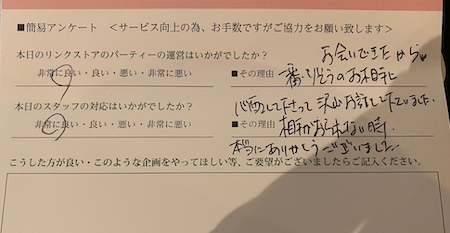 ■簡易アンケート ＜サービス向上の為、お手数ですがご協力をお願い致します＞
本日のリンクストアのパーティーの運営はいかがでしたか？
非常に良い・良い・悪い・非常に悪い
■その理由
お会いできたから
一番りそうのお相手に
本日のスタッフの対応はいかがでしたか？
非常に良い・良い・悪い・非常に悪い
■その理由
心配して下さって沢山お話して下さいました。
相手がおられない時、
本当にありがとうございました
こうした方が良い・このような企画をやってほしい等、ご要望がございましたらご記入ください。